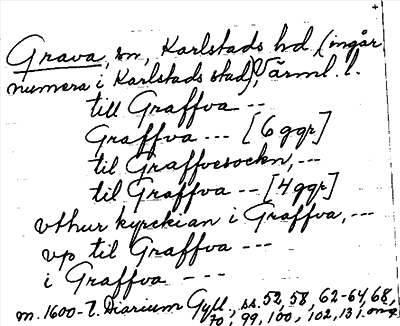 Grava, sn, Karlstads hd (ingår
numera i Karlstads stad), Värml. l.
till Graffva --
Graffva --- [6 ggr]
til Graffvesockn, ---
til Graffva -- [4 ggr]
vthur kyrckian i Graffva, ---
vp til Graffva ---
i Graffva ---
m. 1600-t. Diarium Gyll., ss. 52, 58, 62-64, 68,
70, 99, 100, 102, 131,